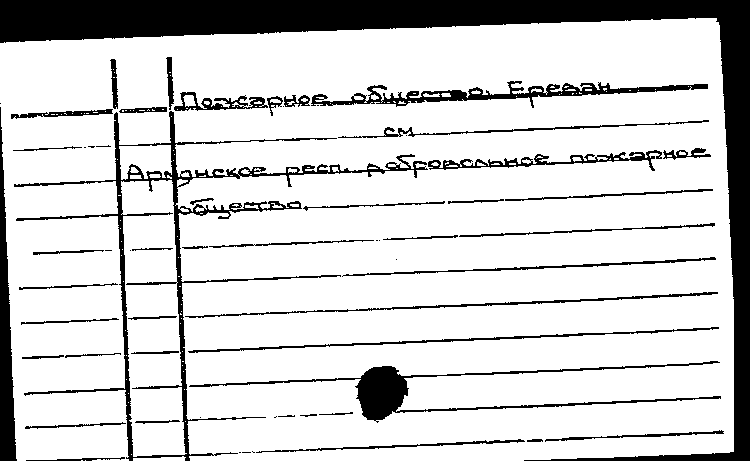 Пожарное общество. Ереван
см
Армянское респ. добровольное пожарное
общество.